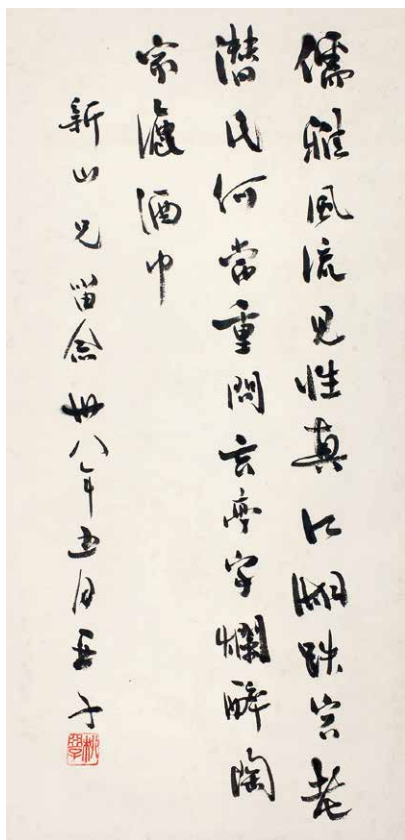 儒雅風流見性真江湖跌宕老
潛民何當重問玄亭字爛醉陶
家漉酒巾
新山兄留念卅八年五月子